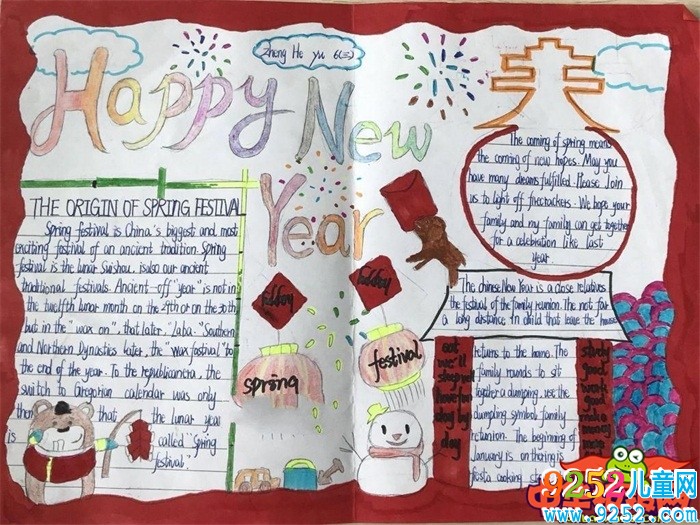 Zheng He yu 6(三)
Happy New
Year
THE ORIGIN OF SPRING FESTIVAL
Spring festival is China's biggest and most
exciting festival of an ancient tradition. Spring
festival is the lunar Suishou, is also our ancient
traditional festivals. Ancient-off "year" is not in
the twelfth lunar month on the 29th or on the 30th
but in the "wax on", that later "Laba". "Southern
and Northern Dynastics later, the "wax fastival" to
the end of the year. To the republicanera, the
switch to Gregorian calendar was only
then that the lunar year
is called "Spring
festival"
spring
festival
The coming of spring means
the coming of new hopes. May you
have many dreams fulfilled. Please Join
us to light off firecrackers. We hope your
family and my family can get together
for a celebration like last
year
The chinese New Year is a close relatives
the festival of the family reunion. The not far
a long distance in child that leave the house
returns to the home. The
family rounds to sit
together a dumpling, use the
dumpling symbol family
retunion. The beginning of
January is on tharing is
fiesta cooking
eat
we'll
sleep well
have fun
day by
day
study
good
work
good
make
money
9252儿童网
www.9252.com